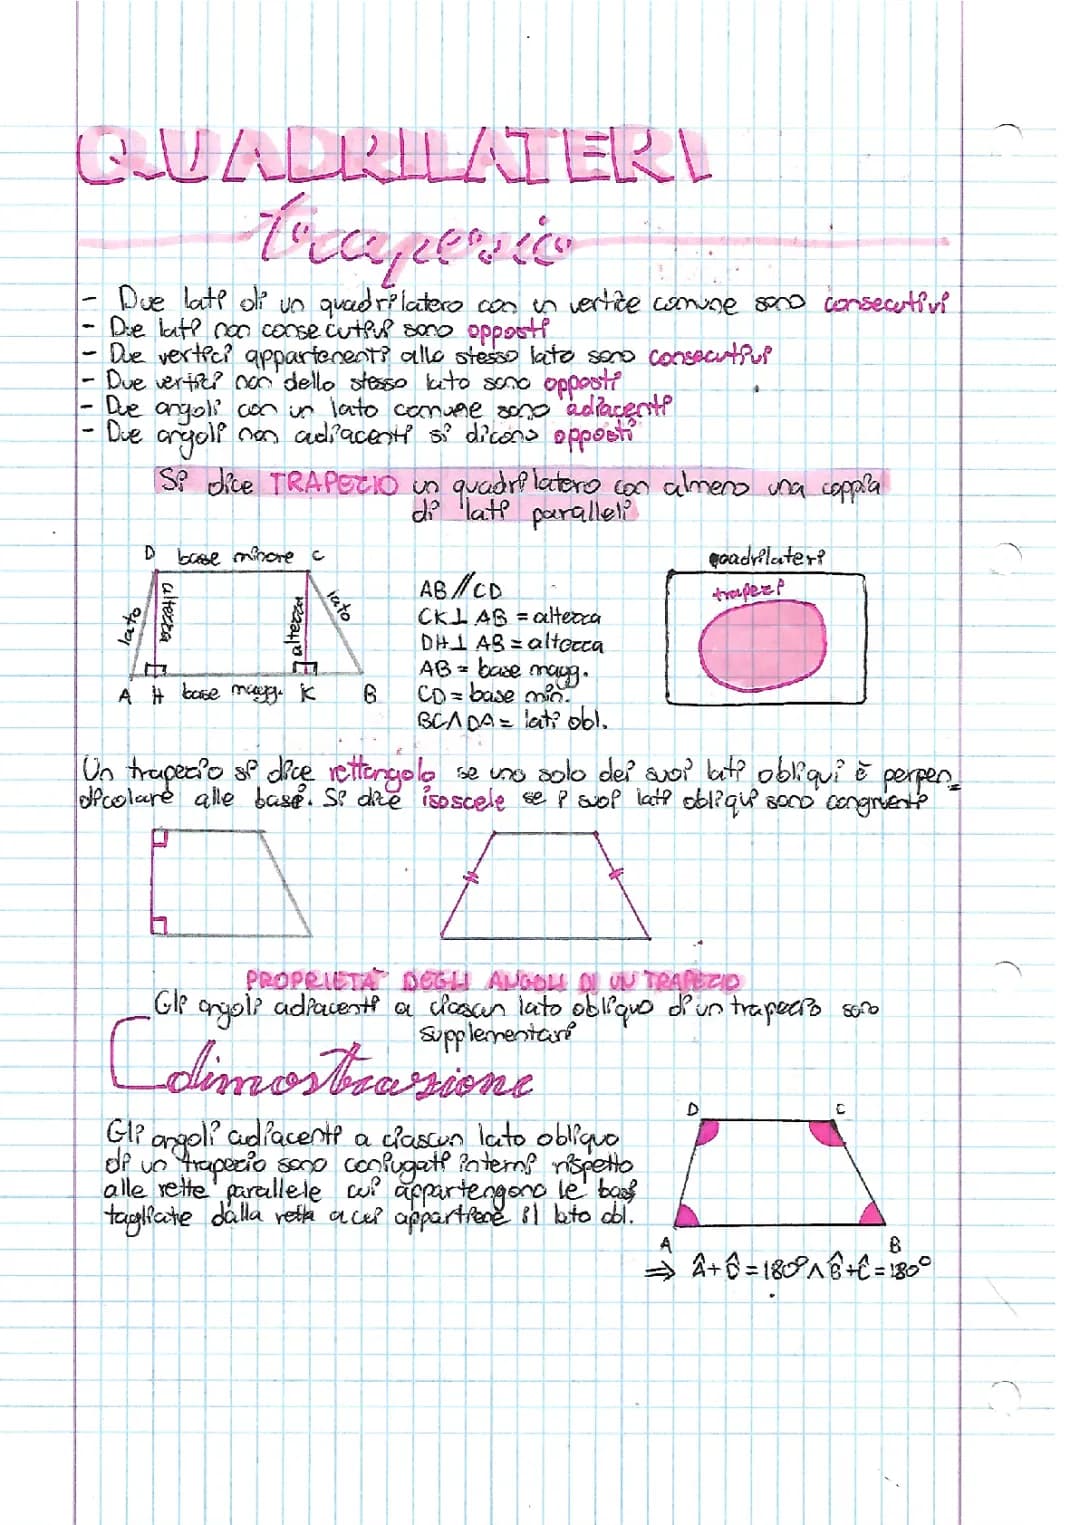 QUADRILATERI
trapezio
- Due lati di un quadrilatero con un vertice comune sono consecutivi
- Due lati non consecutivi sono opposti
- Due vertici appartenenti allo stesso lato sono consecutivi
- Due vertici non dello stesso lato sono opposti
- Due angoli con un lato comune sono adiacenti
- Due angoli non adiacenti si dicono opposti
Si dice TRAPEZIO un quadrilatero con almeno una coppia
di lati paralleli
D base minore C
lato altezza altezza lato
A H base magg. K B
AB // CD
CK ⊥ AB = altezza
DH ⊥ AB = altezza
AB = base magg.
CD = base min.
BC ∧ DA = lati obl.
quadrilateri
trapezi
Un trapezio si dice rettangolo se uno solo dei suoi lati obliqui è perpen_
dicolare alle basi. Si dice isoscele se i suoi lati obliqui sono congruenti
PROPRIETA' DEGLI ANGOLI DI UN TRAPEZIO
Gli angoli adiacenti a ciascun lato obliquo di un trapezio sono
supplementari
dimostrazione
Gli angoli adiacenti a ciascun lato obliquo
di un trapezio sono coniugati interni rispetto
alle rette parallele cui appartengono le basi
tagliate dalla retta a cui appartiene il lato obl.
D C
A B
⇒ Â + D̂ = 180° ∧ B̂ + Ĉ = 180°